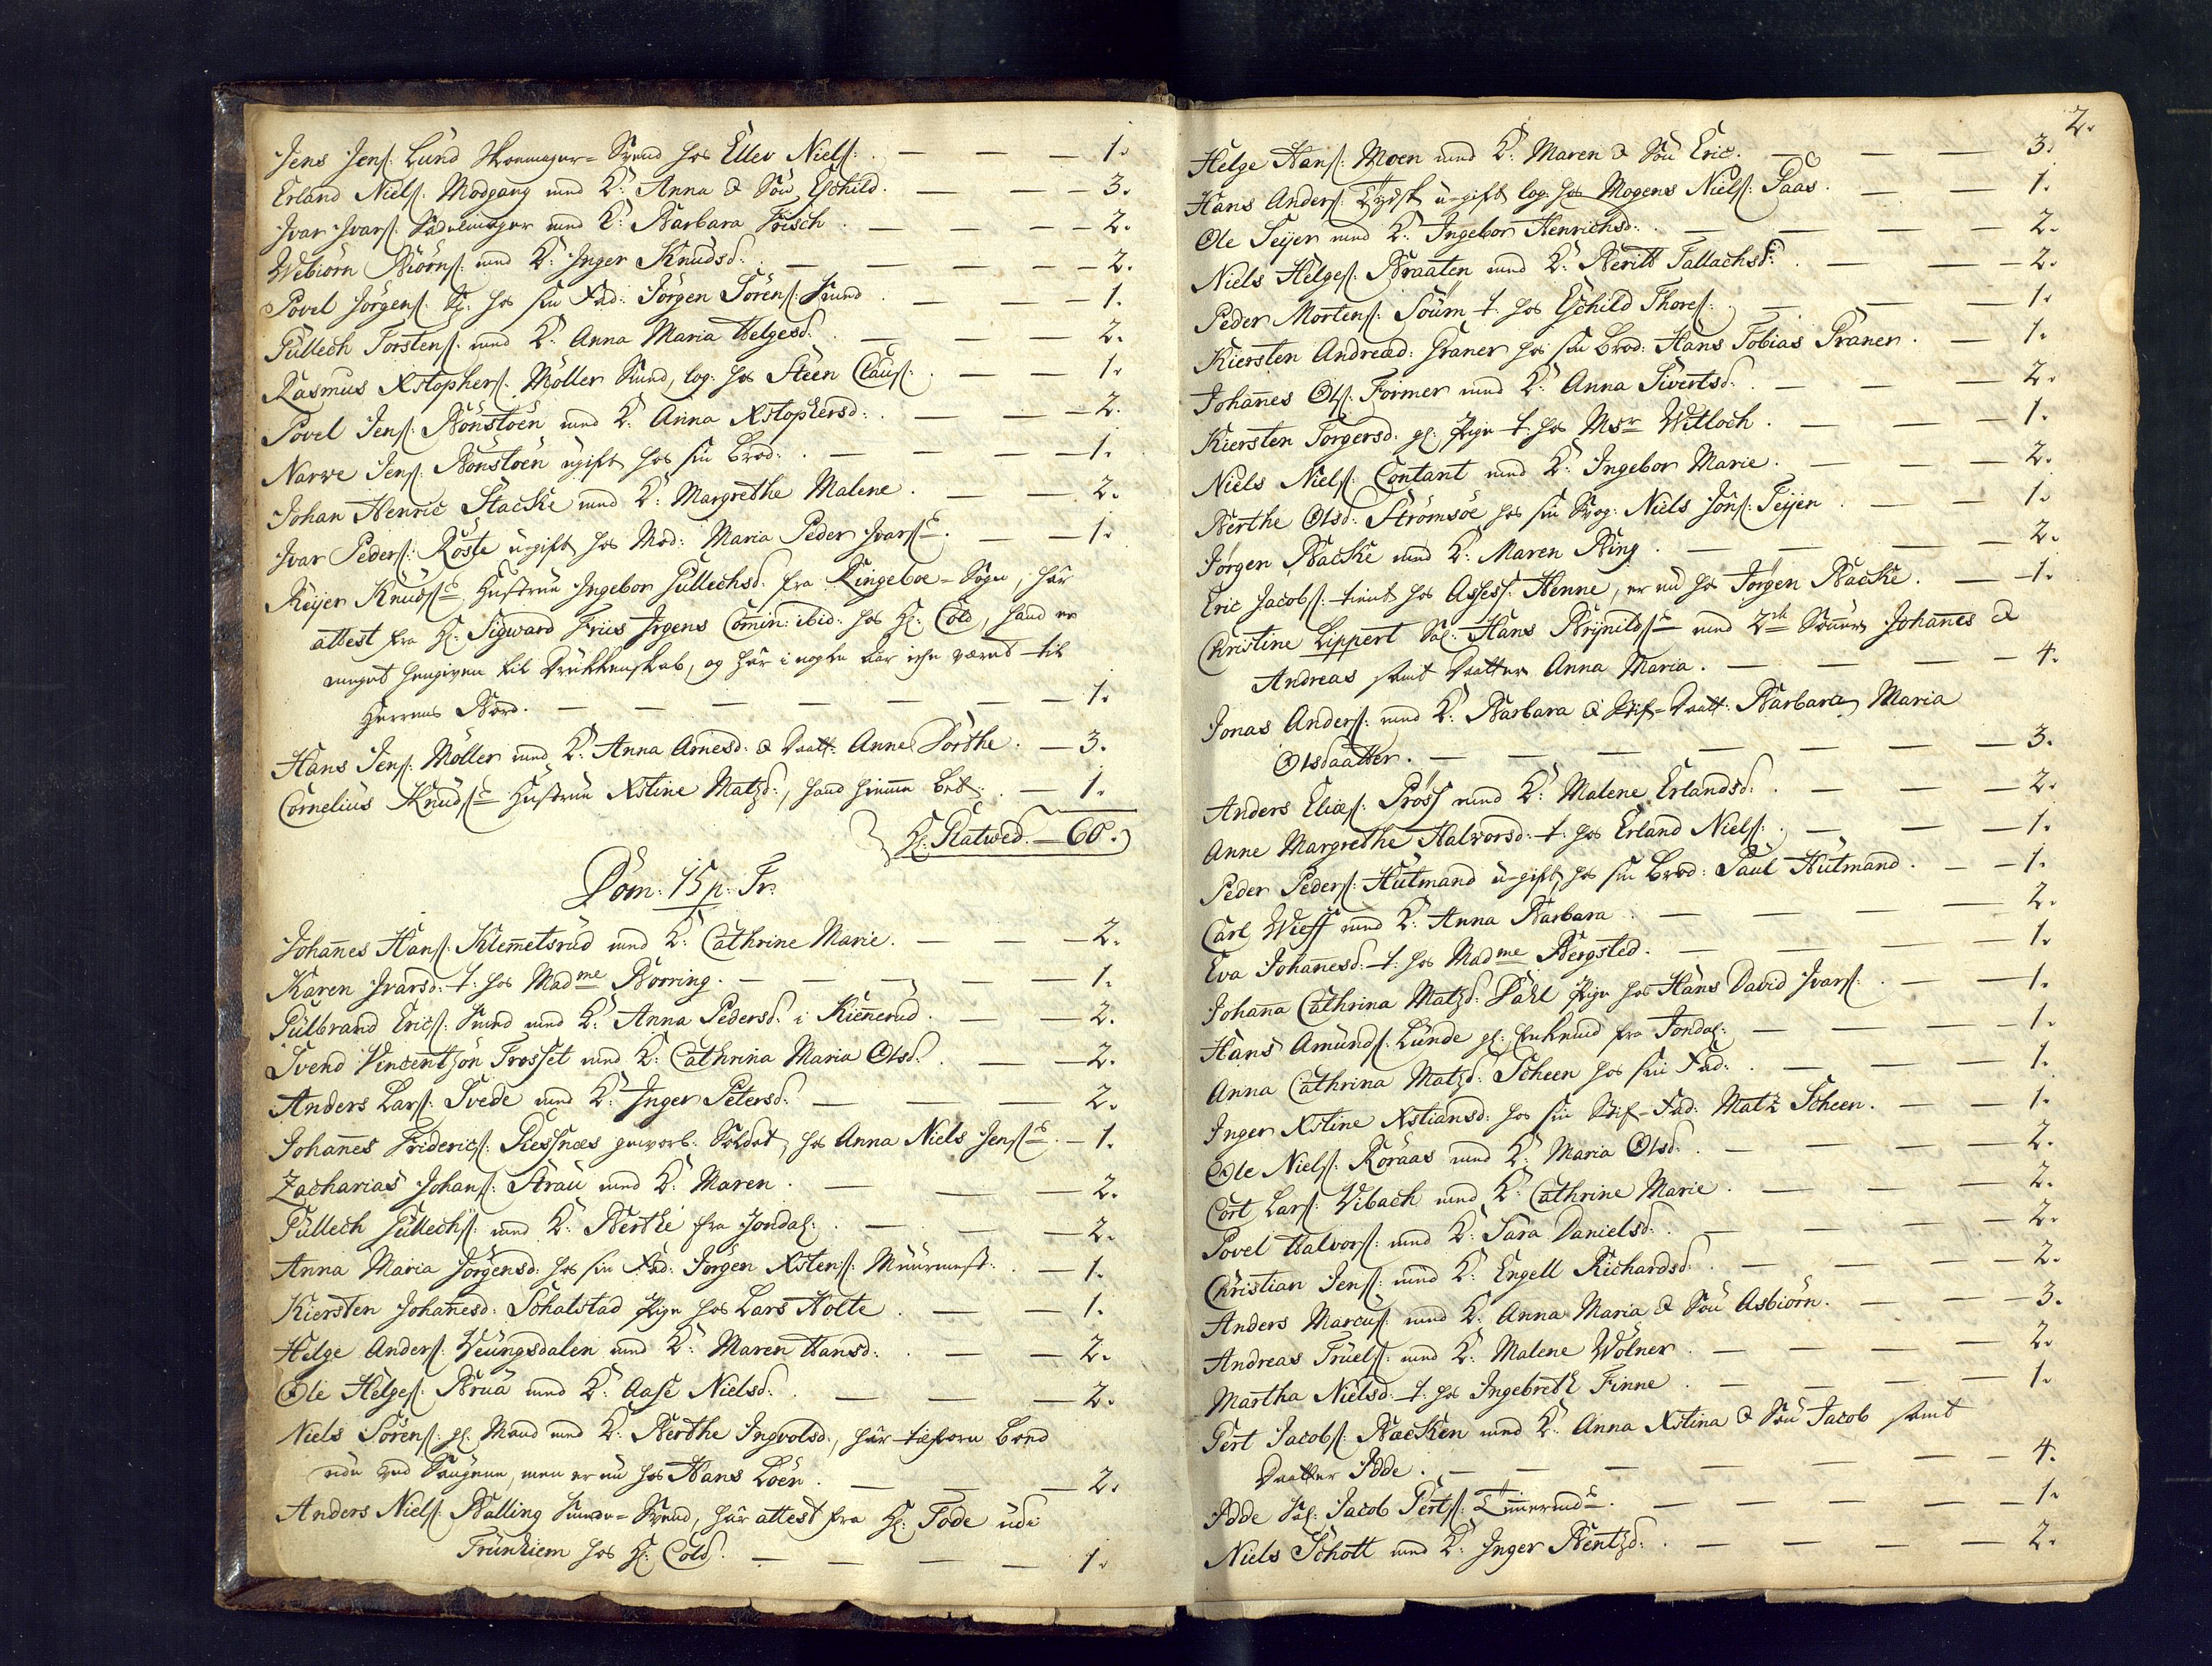 Jens Jens: Lund Skoemager-Svend hos Ellev Niels: . — — — 1.
Erland Niels: Modgang med K: Anna & Sön Eschild. — — — 3.
Jvar Jvars: Sadelmager med K: Barbara Frisch. — — — 2.
Webiörn Biörns: med K: Inger Knudsd: . — — — — 2.
Povel Jörgens: hos sin Fad: Jörgen Sörens: Smed. — — — 1.
Gullech Torstens: med K: Anna Maria Helgesd: — — — 2.
Rasmus Xstophers: Möller Svend, log: hos Steen Claus: . — — 1.
Povel Jens: Bönstöen med K: Anna Xstophersd: . — — — 2.
Narve Jens: Bönstöen ugift hos sin Brod: . — — — 1.
Johan Henric Stacke med K: Margrethe Malene. — — 2.
Jvar Peders: Röste ugift hos Mod: Maria Peder Jvars: — — 1.
Reijer Knuds: Hustrue Ingebor Gullechsd: fra Ringeboe-Sogn, har
attest fra Hr: Sigward Friis Irgens Comin: ibid: hos Hr: Cold, hand er
meget hengiven til Drukkenskab, og har i nogle Aar icke væred til
Herrens Bord. — — — — — — — 1.
Hans Jens: Möller med K: Anna Arnesd: & Daatt: Anne Dorthe. — 3.
Cornelius Knuds: Hustrue Xstine Matzd: , hand hiemme — 1.
Hr: Flatwed. — 60.
Dom: 15 p: Tr:
Johañes Hans: Klemetsrud med K: Cathrine Marie. — — — 2.
Karen Jvarsd: t: hos Madme Borring. — — — — 1.
Gulbrand Erics: Smed med K: Anna Pedersd: i Kiennerud. — — 2.
Svend Vincentson Frosset med K: Cathrina Maria Olsd: . — — 2.
Anders Lars: Svede med K: Inger Petersd: — — — 2.
Johañes Friderics: Giessnæs geworb: Soldat, hos Anna Niels Jens: — 1.
Zacharias Johans: Strau med K: Maren. — — — 2.
Gullech Gullechs: med K: Berthe fra Jondal: . — — — 2.
Anna Maria Jörgensd: hos sin Fad: Jörgen Xstens: Muurmest: . — 1.
Kiersten Johañesd: Schatstad Pige hos Lars Holte. — — 1.
Helge Anders: Veungsdalen med K: Maren Hansd: . — — 2.
Ole Helges: Brua med K: Aase Nielsd: . — — — 2.
Niels Sörens: gl: Mand med K: Berthe Ingvolsd: , har tilforn boed
ude ved Saugene, men er nu hos Hans Loen. — — — 2.
Anders Niels: Balling Svend, har attest fra Hr: Tode udi
Trunhiem hos Hr: Cold. — — — — 1.
2.
Helge Hans: Moen med K: Maren & Sön Eric. — — — 3.
Hans Anders: Tydsk ugift log: hos Mogens Niels: Paas. — — 1.
Ole Seijer med K: Ingebor Henrichsd: . — — — — 2.
Niels Helges: Braaten med K: Beritt Tallachsd: . — — — 2.
Peder Mortens: Sourn t: hos Eschild Thores: . — — — 1.
Kiersten Andread: Graner hos sin Brod: Hans Tobias Graner. — 1.
Johañes Ols: Former med K: Anna Sivertsd: . — — — 2.
Kiersten Torgersd: gl: Pige t: hos Msr Witloch. — — — 1.
Niels Niels: Contant med K: Ingebor Marie. — — — 2.
Berthe Olsd: Strömsöe hos sin Svog: Niels Jöns: Teijen. — — 1.
Jörgen Backe med K: Maren Bing. — — — — 2.
Eric Jacobs: tient hos Assess: Henne, er nu hos Jörgen Backe. — 1.
Christine Lippert Sal: Hans Brynilds: med 2de Sönner Johañes &
Andreas samt Daatter Anna Maria. — — — — 4.
Jonas Anders: med K: Barbara & Stif-Daatt: Barbara Maria
Olsdaatter. — — — — — — 3.
Anders Elias: Pröss med K: Malene Erlandsd: . — — — 2.
Anne Margrethe Halvorsd: t: hos Erland Niels: . — — — 1.
Peder Peders: Hutmand ugift, hos sin Brod: Paul Hutmand. — — 1.
Carl Wieff med K: Anna Barbara. — — — — 2.
Eva Johañesd: t: hos Madme Bergsted. — — — — 1.
Johana Cathrina Matzd: Dahl Pige hos Hans David Jvars: . — 1.
Hans Amunds: Lunde gl: Enkemd fra Jondal: — — — 1.
Anna Cathrina Matzd: Scheen hos sin Fad: . — — — 1.
Inger Xstine Xstiansd: hos sin Stif-Fad: Matz Scheen. — — 1.
Ole Niels: Röraas med K: Maria Olsd: . — — — 2.
Cort Lars: Vibach med K: Cathrine Marie. — — — 2.
Povel Halvors: med K: Sara Danielsd: . — — — — 2.
Christian Jens: med K: Engell Richardsd: . — — — 2.
Anders Marcus: med K: Anna Maria & Sön Asbiörn. — — — 3.
Andreas Truels: med K: Malene Wölner. — — — — 2.
Martha Nielsd: t: hos Ingebreth Finne. — — — — 1.
Gert Jacobs: Backen med K: Anna Xstina & Sön Jacob samt
Daatter Adde. — — — — — — 4.
Adde Sal: Jacob Gerts: Timermds. — — — — 1.
Niels Schott med K: Inger Bentzd: . — — — — 2.